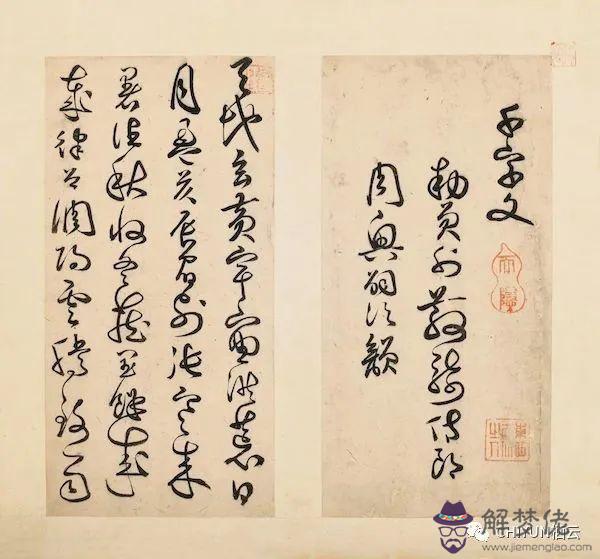 千字文
勅員外散騎侍郎
周興嗣次韻
天地玄黃宇宙洪荒日
月盈昃辰宿列張寒來
暑往秋收冬藏閏餘成
歲律呂調陽雲騰致雨
解梦佬
www.jiemenglao.com